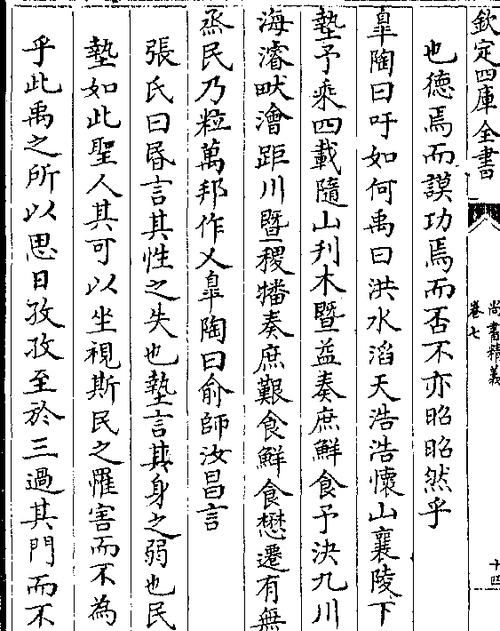 欽定四庫全書
尚書精義
卷七
十四
也德焉而謨功焉而否不亦昭昭然乎
皐陶曰吁如何禹曰洪水滔天浩浩懷山襄陵下
墊予乘四載隨山刋木暨益奏庶鮮食予決九川
海濬畎澮距川暨稷播奏庶艱食鮮食懋遷有無
烝民乃粒萬邦作乂皐陶曰俞師汝昌言
張氏曰昬言其性之失也墊言其身之弱也民
墊如此聖人其可以坐視斯民之罹害而不為
乎此禹之所以思日孜孜至於三過其門而不